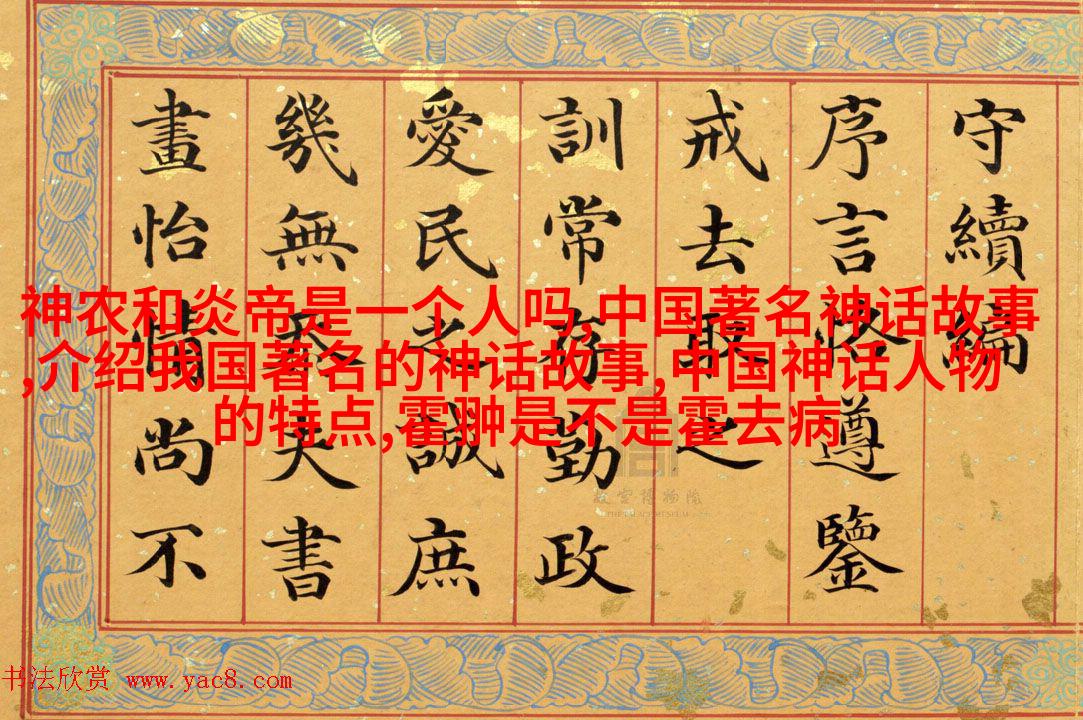 守續編
序言恪遵鑒
戒去取之
訓常存勤政
愛民之誠庶
幾無忝夫書
畫怡情尚不
神农和炎帝是一个人吗,中国著名神话故事
,介绍我国著名的神话故事,中国神话人物
的特点,霍翀是不是霍去病
故宫博物院
THE PALACE MUSEUM
书法欣赏 www.yac8.com